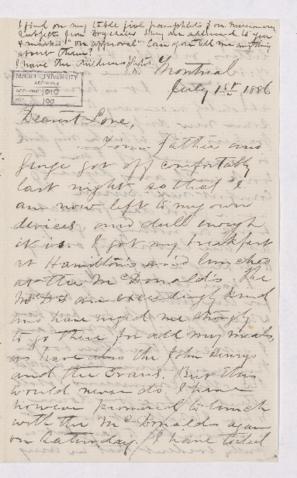 I find on my table five pamphlets on missionary
subjects from Drysdales they are addressed to you
& marked "on approval" Can you tell me anything
about them?
I have the
McGILL UNIVERSITY
ARCHIVES
ACC. NO. 1010
REF.
Montreal
July 1st 1886
Dearest Love,
Your father and
George got off comfortably
last night so that I
am now left to my own
devices and dull enough
it is. I got my breakfast
at Hamilton's and lunched
at the McDonalds. The
McDs are exceedingly kind
and have urged me strongly
to go there for all my meals
as have also the John
and the Evans. But this
would never do. I have
however promised to lunch
with the McDonalds again
on Saturday. I have